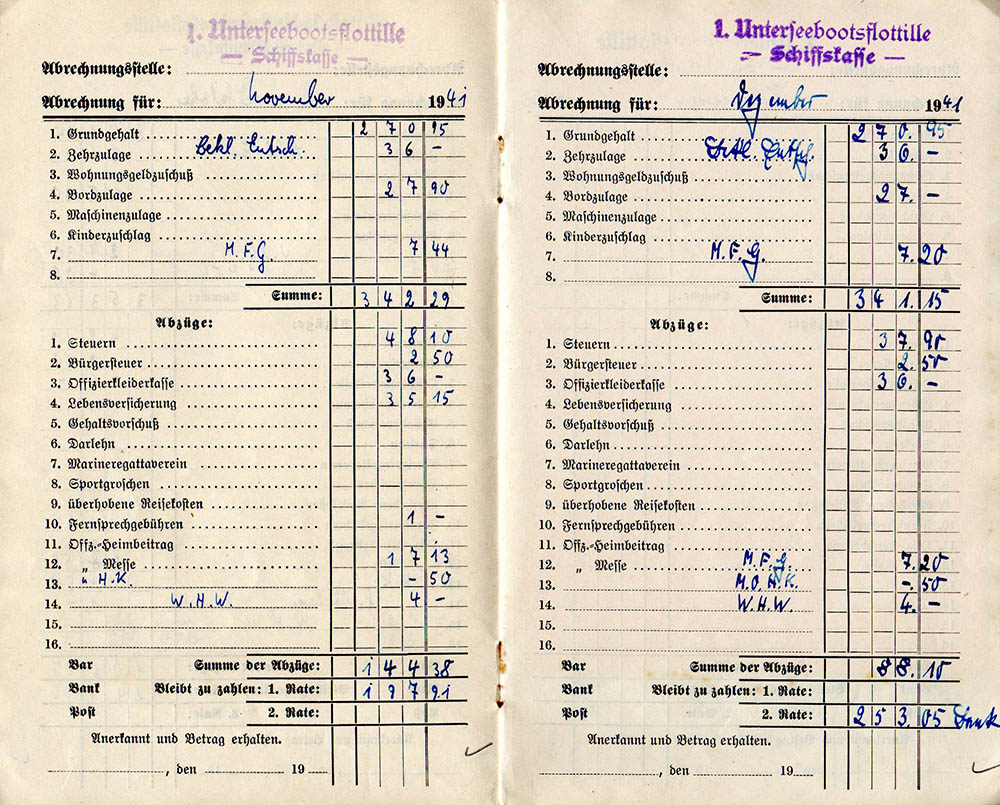 1. Unterseebootsflottille
— Schiffskasse —
Abrechnungsstelle:
Abrechnung für: November 1941
1. Grundgehalt 270 95
2. Zehrzulage Bekl. Entsch. 36 –
3. Wohnungsgeldzuschuß
4. Bordzulage 27 90
5. Maschinenzulage
6. Kinderzuschlag
7. M.F.G. 7 44
8.
Summe: 342 29
Abzüge:
1. Steuern 48 10
2. Bürgersteuer 2 50
3. Offizierkleiderkasse 36 –
4. Lebensversicherung 35 15
5. Gehaltsvorschuß
6. Darlehn
7. Marineregattaverein
8. Sportgroschen
9. überhobene Reisekosten
10. Fernsprechgebühren 1 –
11. Offz.-Heimbeitrag
12. „ Messe 17 13
13. " H.K. – 50
14. W.H.W. 4 –
15.
16.
Bar Summe der Abzüge: 144 38
Bank Bleibt zu zahlen: 1. Rate: 197 91
Post 2. Rate:
Anerkannt und Betrag erhalten.
, den 19
1. Unterseebootsflottille
— Schiffskasse —
Abrechnungsstelle:
Abrechnung für: Dezember 1941
1. Grundgehalt 270. 95
2. Zehrzulage Entsch. 36. –
3. Wohnungsgeldzuschuß
4. Bordzulage 27. –
5. Maschinenzulage
6. Kinderzuschlag
7. M.F.G. 7. 20
8.
Summe: 341. 15
Abzüge:
1. Steuern 37. 90
2. Bürgersteuer 2. 50
3. Offizierkleiderkasse 36. –
4. Lebensversicherung
5. Gehaltsvorschuß
6. Darlehn
7. Marineregattaverein
8. Sportgroschen
9. überhobene Reisekosten
10. Fernsprechgebühren
11. Offz.-Heimbeitrag
12. „ Messe M.F.G. 7. 20
13. M.O.H.K. –. 50
14. W.H.W. 4. –
15.
16.
Bar Summe der Abzüge: 88. 10
Bank Bleibt zu zahlen: 1. Rate:
Post 2. Rate: 253. 05 Bank
Anerkannt und Betrag erhalten.
, den 19